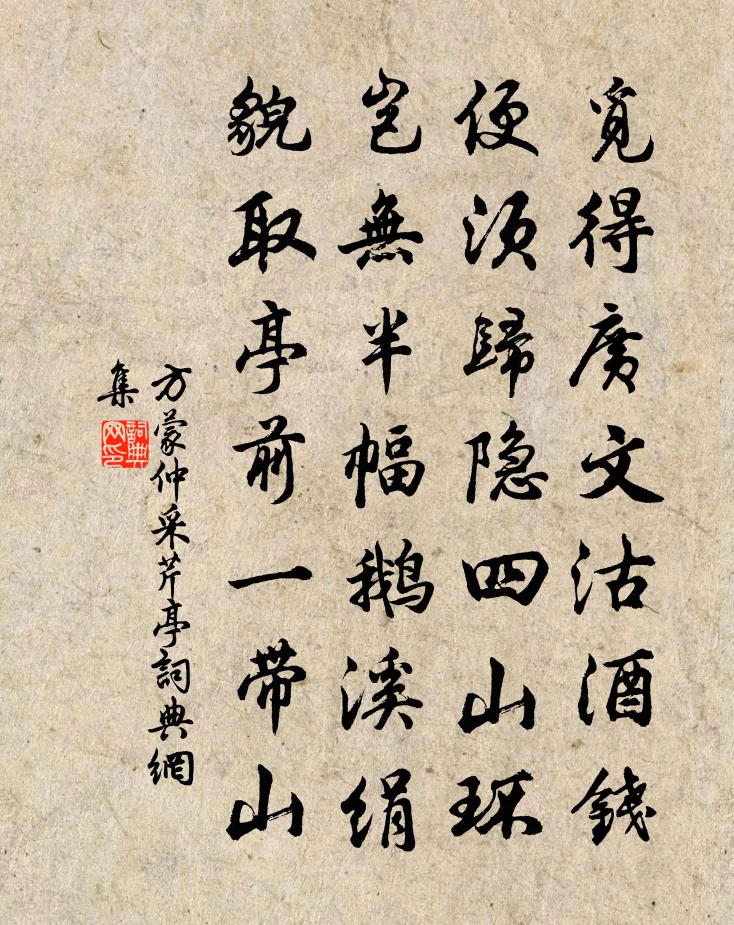 覓得廣文沽酒錢
便須歸隐四山环
岂無半幅鵝溪絹
貌取亭前一帶山
方蒙仲采芹亭詞典網
集
詞典
网印